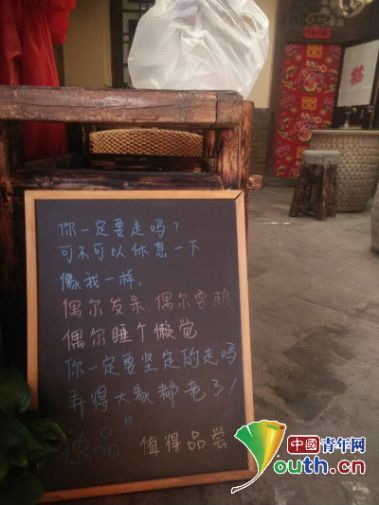 你一定要走吗?
可不可以休息一下
像我一样,
偶尔发呆.偶尔耍赖
偶尔睡个懒觉
你一定要坚定的走吗
弄得大家都老了!
值得品尝
中國青年网
Youth.cn